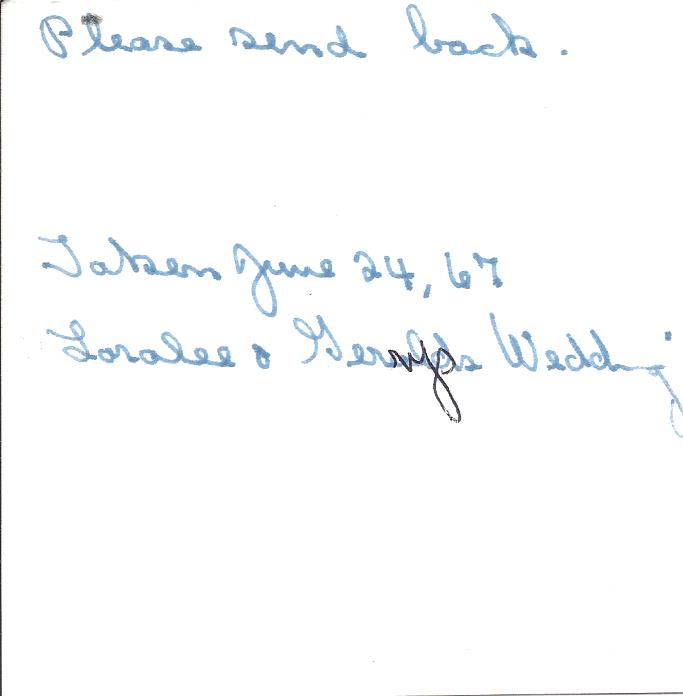 Please send back.
Taken June 24, 67
Loralee & Gerrys Wedding